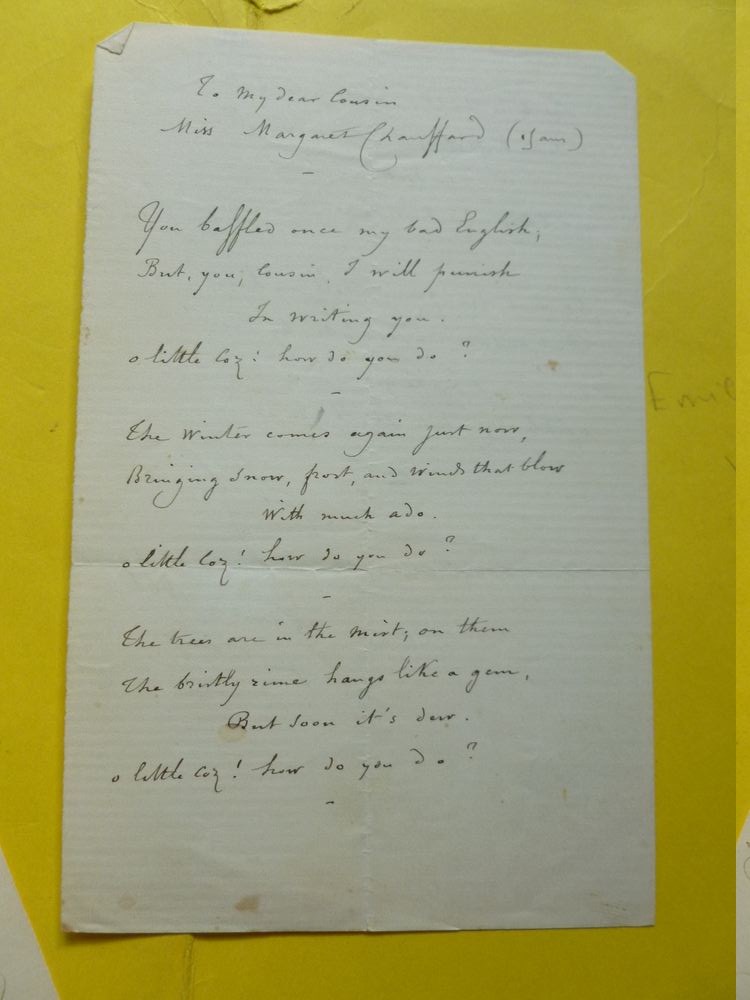 To my dear Cousin
Miss Margaret Chauffard (15 ans)
You baffled once my bad English;
But, you, Cousin, I will punish
In writing you.
o little Coz! how do you do?
The Winter comes again just now,
Bringing Snow, frost, and winds that blow
With much ado.
o little Coz! how do you do?
The trees are in the mist; on them
The bristly rime hangs like a gem,
But soon it's dew.
o little Coz! how do you do?